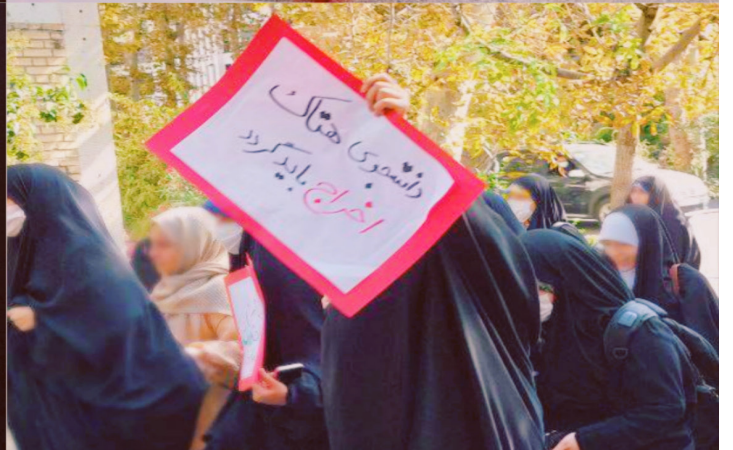 دانشجوی هتاک
اخراج باید گردد